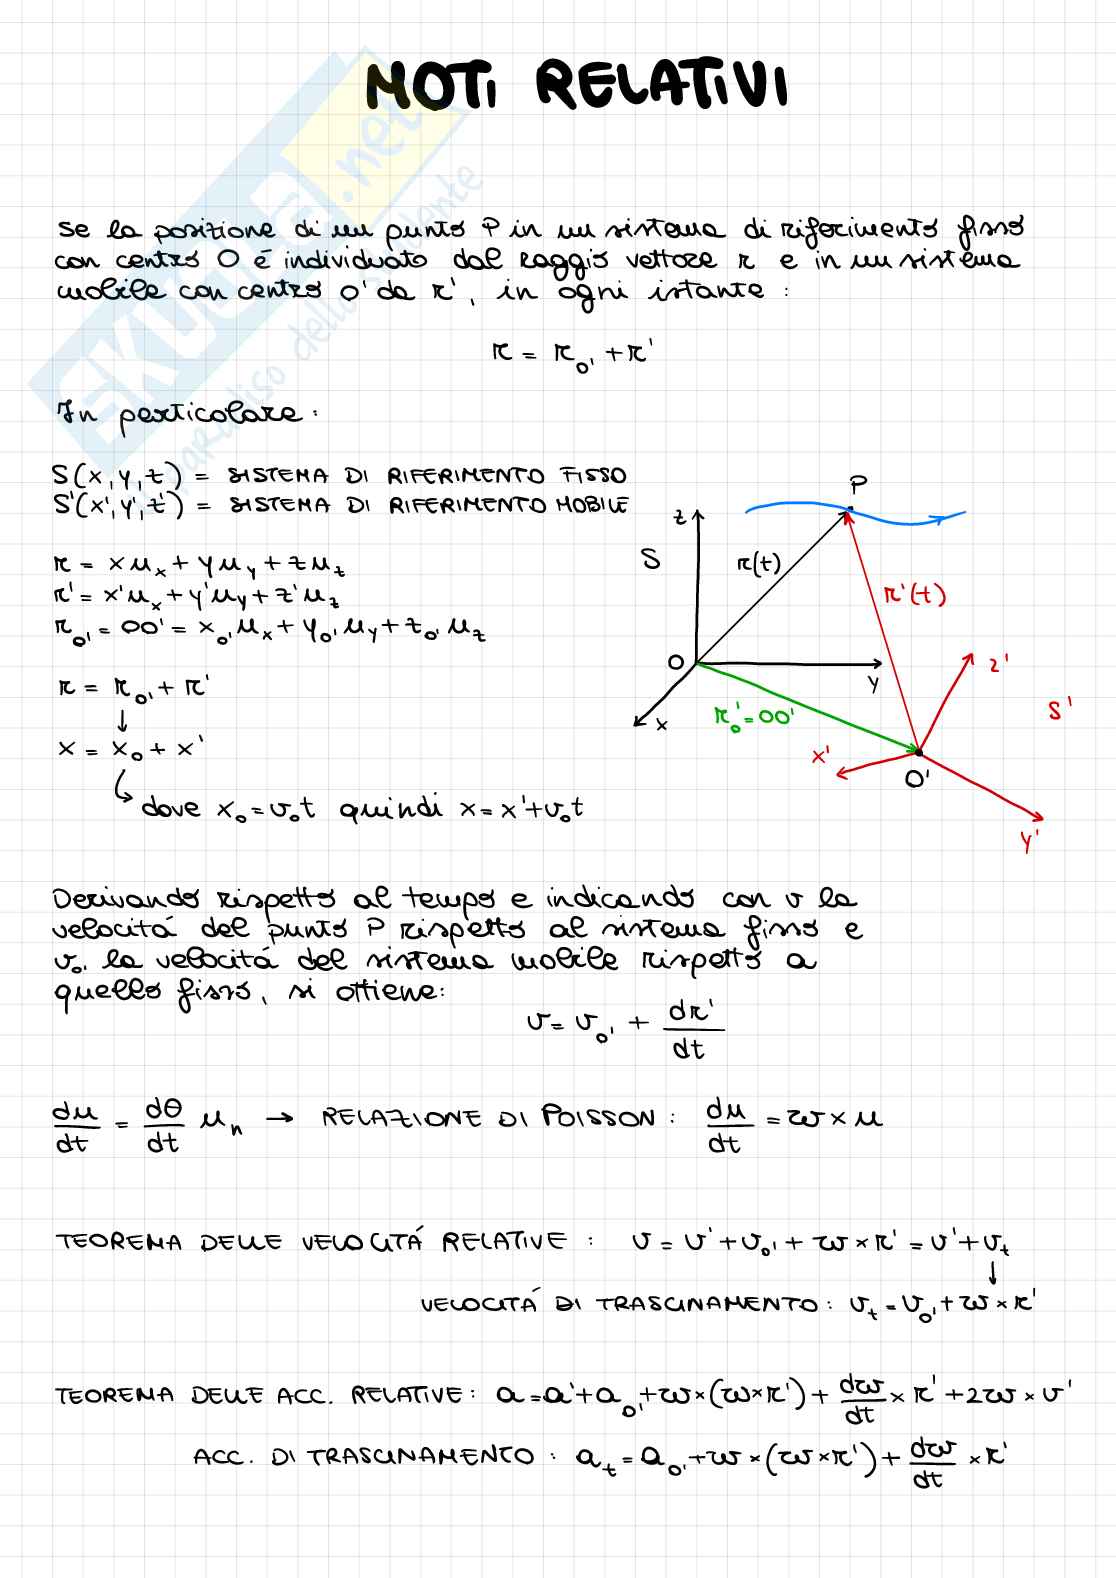 MOTI RELATIVI
Se la posizione di un punto P in un sistema di riferimento fisso
con centro O é individuato dal raggio vettore r e in un sistema
mobile con centro O' da r', in ogni istante :
r = r₀' + r'
In particolare :
S(x,y,z) = SISTEMA DI RIFERIMENTO FISSO
S'(x',y',z') = SISTEMA DI RIFERIMENTO MOBILE
r = xuₓ + yu_y + zu_z
r' = x'uₓ + y'u_y + z'u_z
r₀' = OO' = x₀'uₓ + y₀'u_y + z₀'u_z
r = r₀' + r'
↓
x = x₀ + x'
dove x₀ = v₀t quindi x = x' + v₀t
P
z
S
r(t)
r'(t)
O
y
x
r₀' = OO'
z'
S'
x'
O'
y'
Derivando rispetto al tempo e indicando con v la
velocitá del punto P rispetto al sistema fisso e
v₀' la velocitá del sistema mobile rispetto a
quello fisso, si ottiene:
v = v₀' + dr'/dt
du/dt = dθ/dt uₙ → RELAZIONE DI POISSON : du/dt = ω × u
TEOREMA DELLE VELOCITÁ RELATIVE : v = v' + v₀' + ω × r' = v' + vₜ
↓
VELOCITÁ DI TRASCINAMENTO : vₜ = v₀' + ω × r'
TEOREMA DELLE ACC. RELATIVE : a = a' + a₀' + ω × (ω × r') + dω/dt × r' + 2ω × v'
ACC. DI TRASCINAMENTO : aₜ = a₀' + ω × (ω × r') + dω/dt × r'
SKUOLA.net
paradiso dello studente